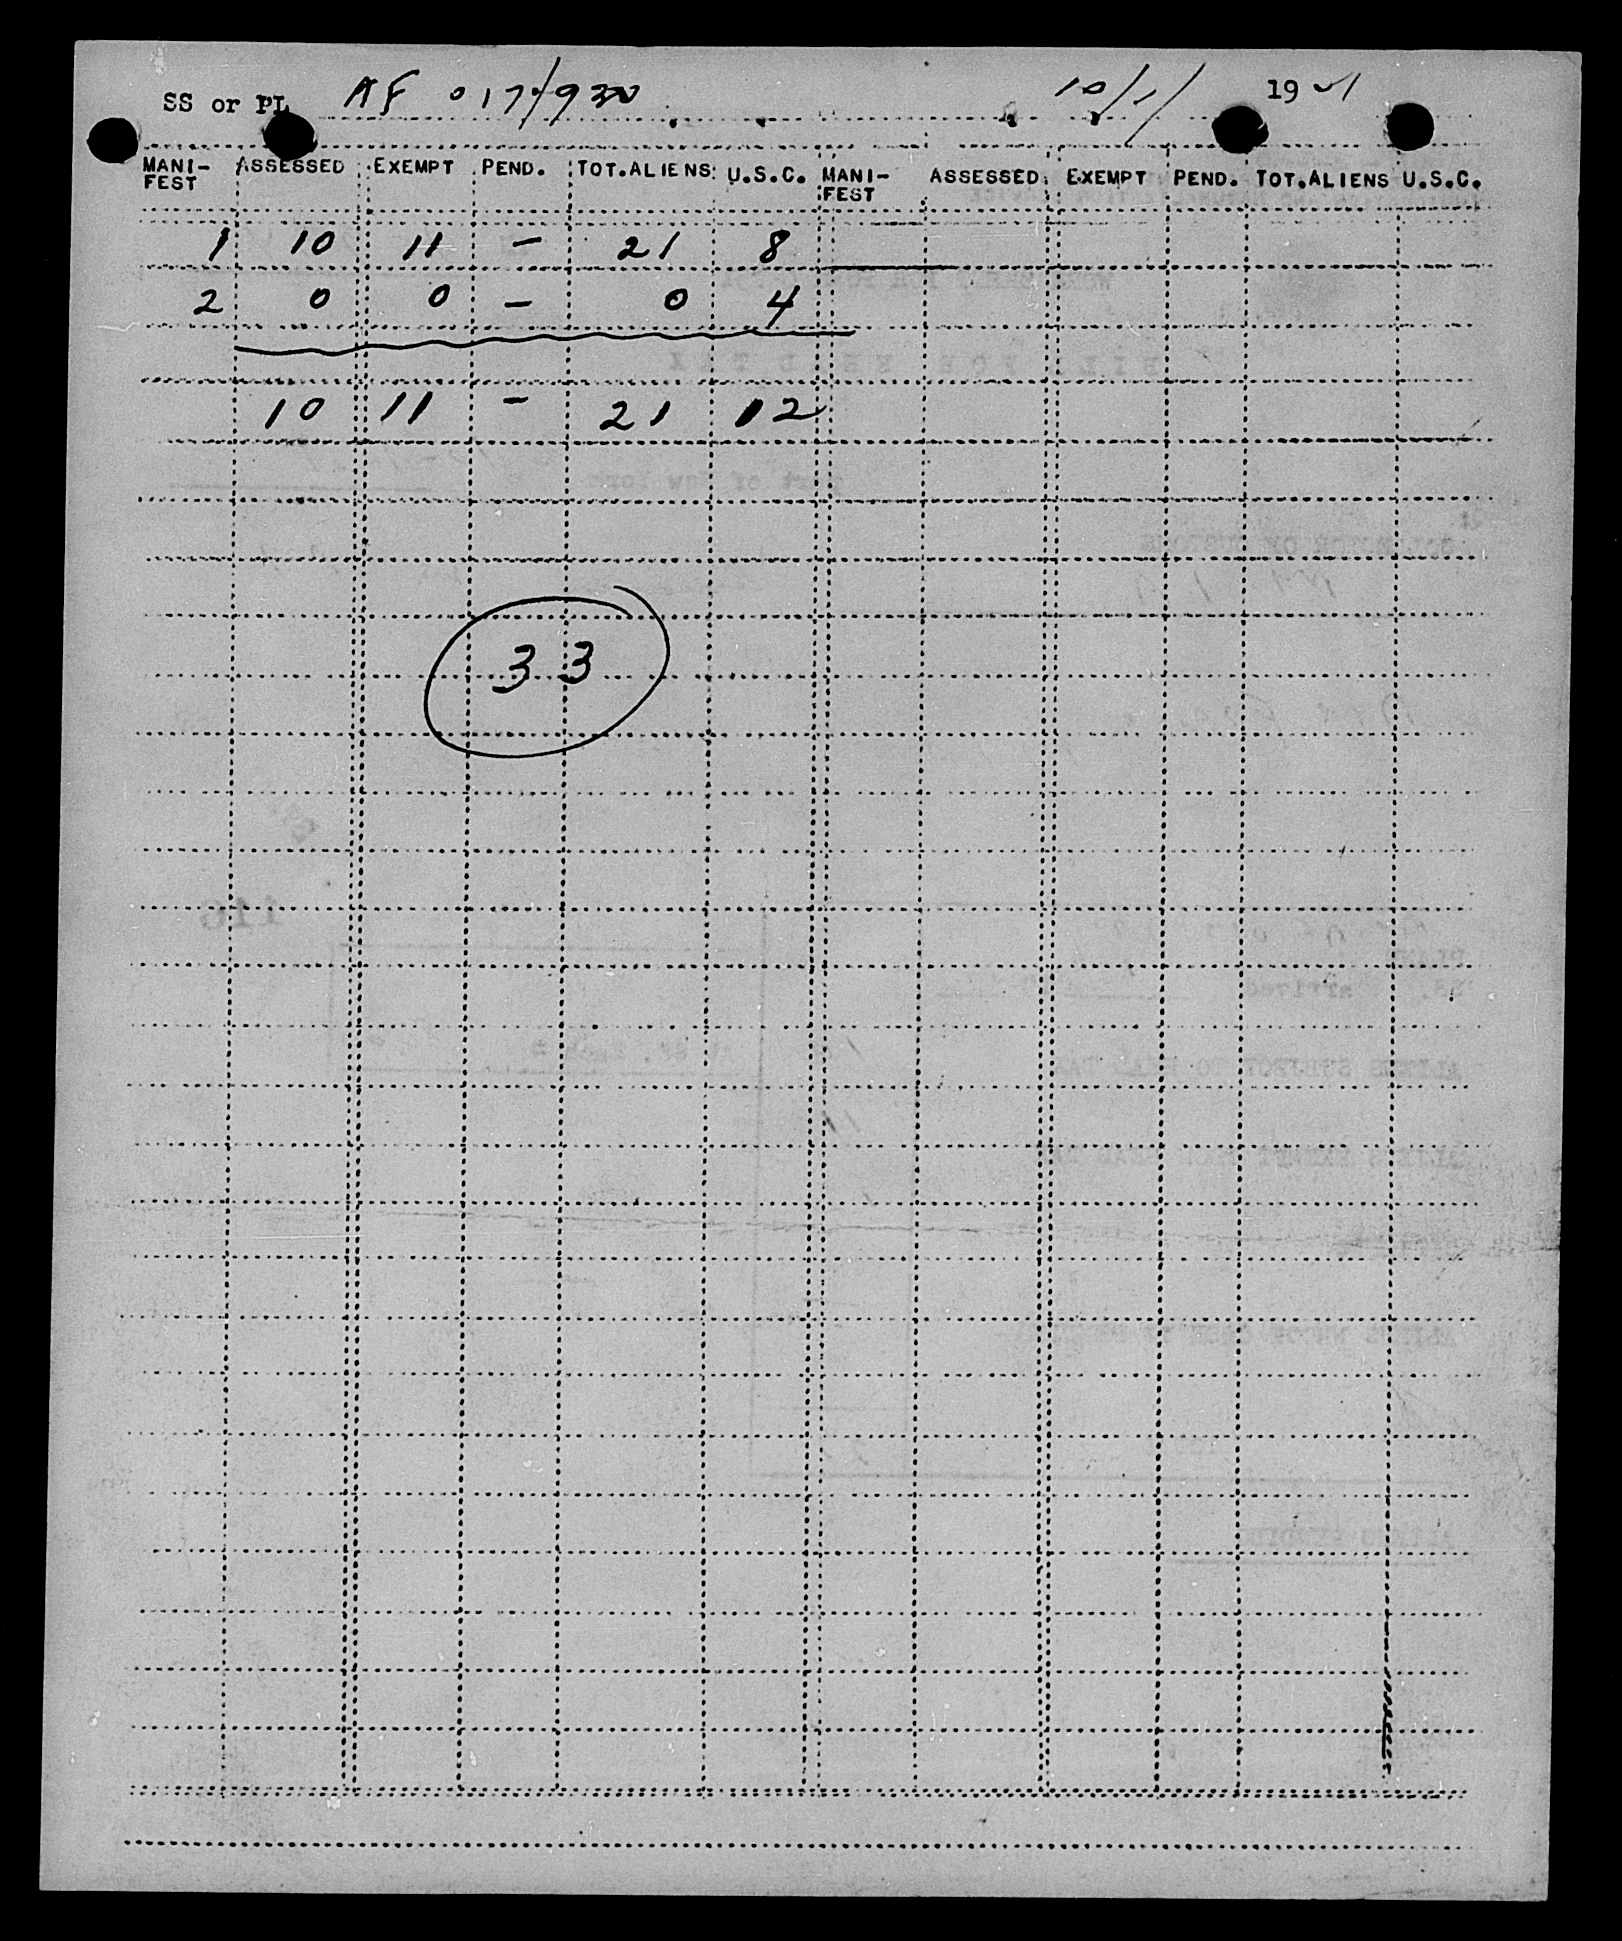 SS or PL AF 017/930 10/1/ 1951
MANI-FEST ASSESSED EXEMPT PEND. TOT.ALIENS U.S.C. MANI-FEST ASSESSED EXEMPT PEND. TOT.ALIENS U.S.C.
1 10 11 - 21 8
2 0 0 - 0 4
10 11 - 21 12
33